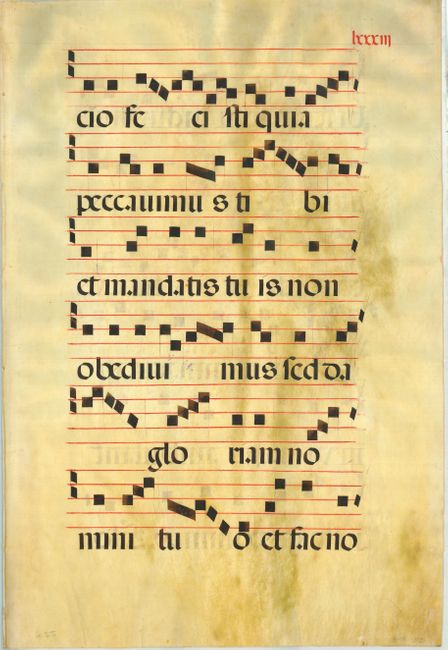 lxxxiij
cio fe ci sti quia
peccauimu s ti bi
et mandatis tu is non
obediui mus sed da
glo riam no
mini tu o et fac no